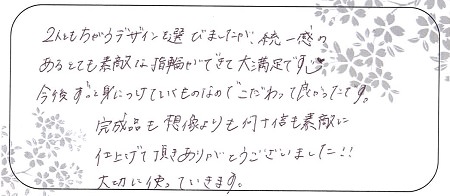 2人ともちがうデザインを選びましたが、統一感の
あるとても素敵な指輪ができて大満足です
今後ずっと身につけていくものなのでこだわって良かったです。
完成品も想像よりも何十倍も素敵に
仕上げて頂きありがとうございました!!
大切に使っていきます。